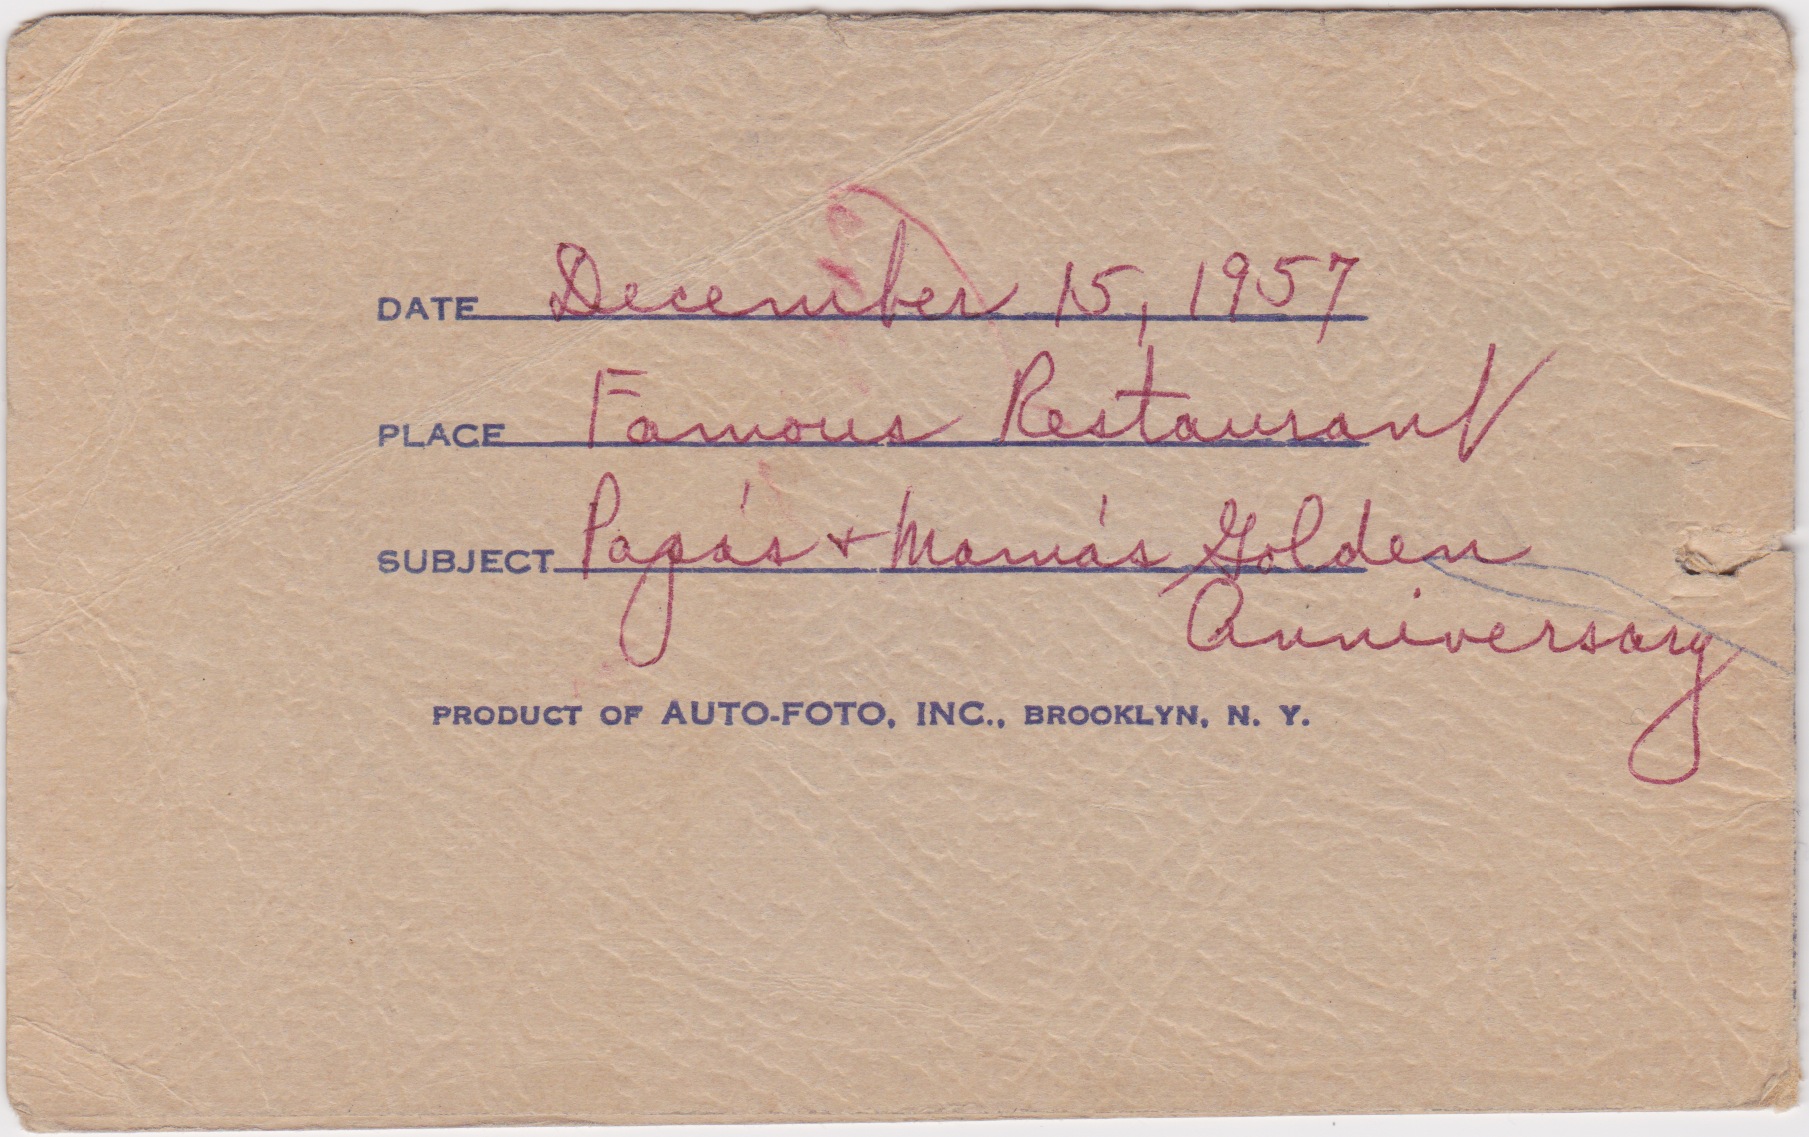 DATE December 15, 1957
PLACE Famous Restaurant
SUBJECT Papa's + Mama's Golden
Anniversary
PRODUCT OF AUTO-FOTO, INC., BROOKLYN, N. Y.